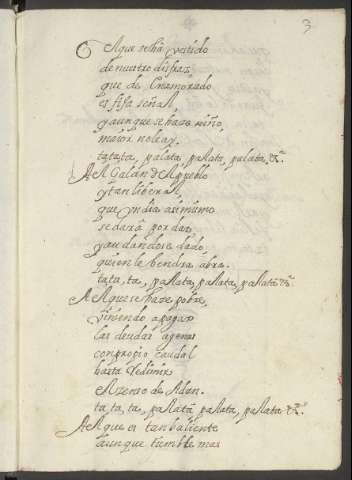 3
Al que se ha vestido
de nuestro disfraz,
que de Enamorado
es fija señal,
y aunque se hase niño,
maior no le ay.
tatata, palata, pallata, palata, &.ª
Al Galan del Pueblo
y tan liberal,
que un dia asi mismo
se dara por dar,
y aun dandose dado,
quien le tendra abra.
tata, ta, pallata, pallata, pallata &.ª
Al que se hase pobre,
viniendo a pagar
las deudas agenas
con propio caudal
hasta redimir
el zenso de Adan.
ta, ta, ta, pallata, pallata, pallata &.ª
Al que es tan baliente
aunque tiemble mas